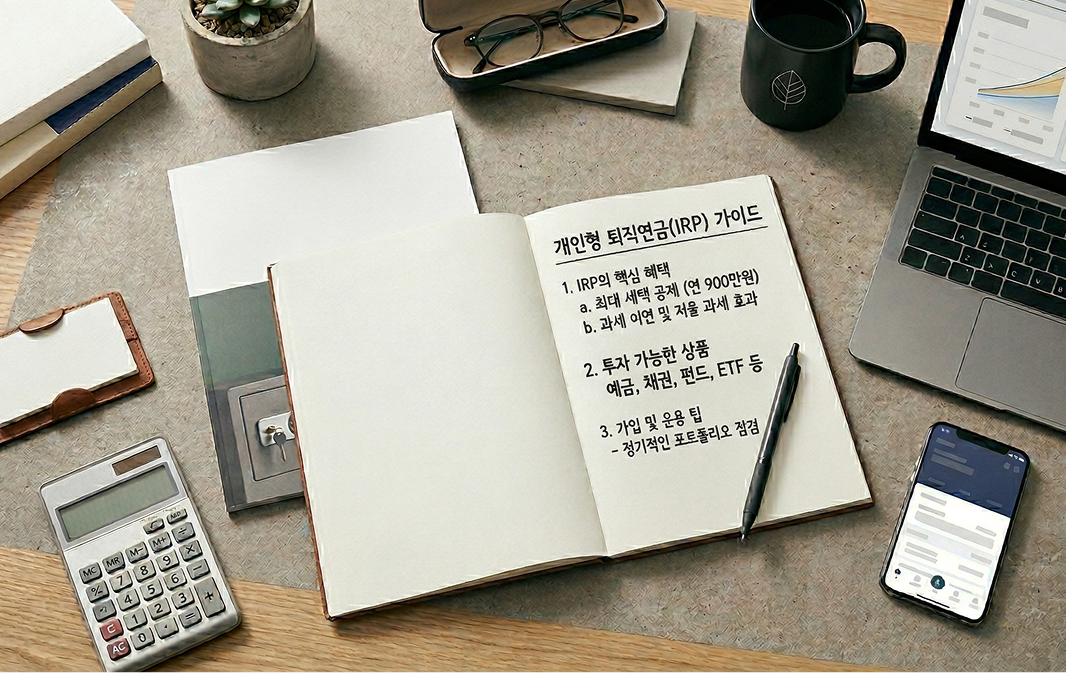 개인형 퇴직연금(IRP) 가이드
1. IRP의 핵심 혜택
a. 최대 세택 공제 (연 900만원)
b. 과세 이연 및 저율 과세 효과
2. 투자 가능한 상품
예금, 채권, 펀드, ETF 등
3. 가입 및 운용 팁
- 정기적인 포트폴리오 점검
MC MR M- M+ ÷
% 7 8 9 ×
4 5 6 −
C 1 2 3 +
AC 0 · =